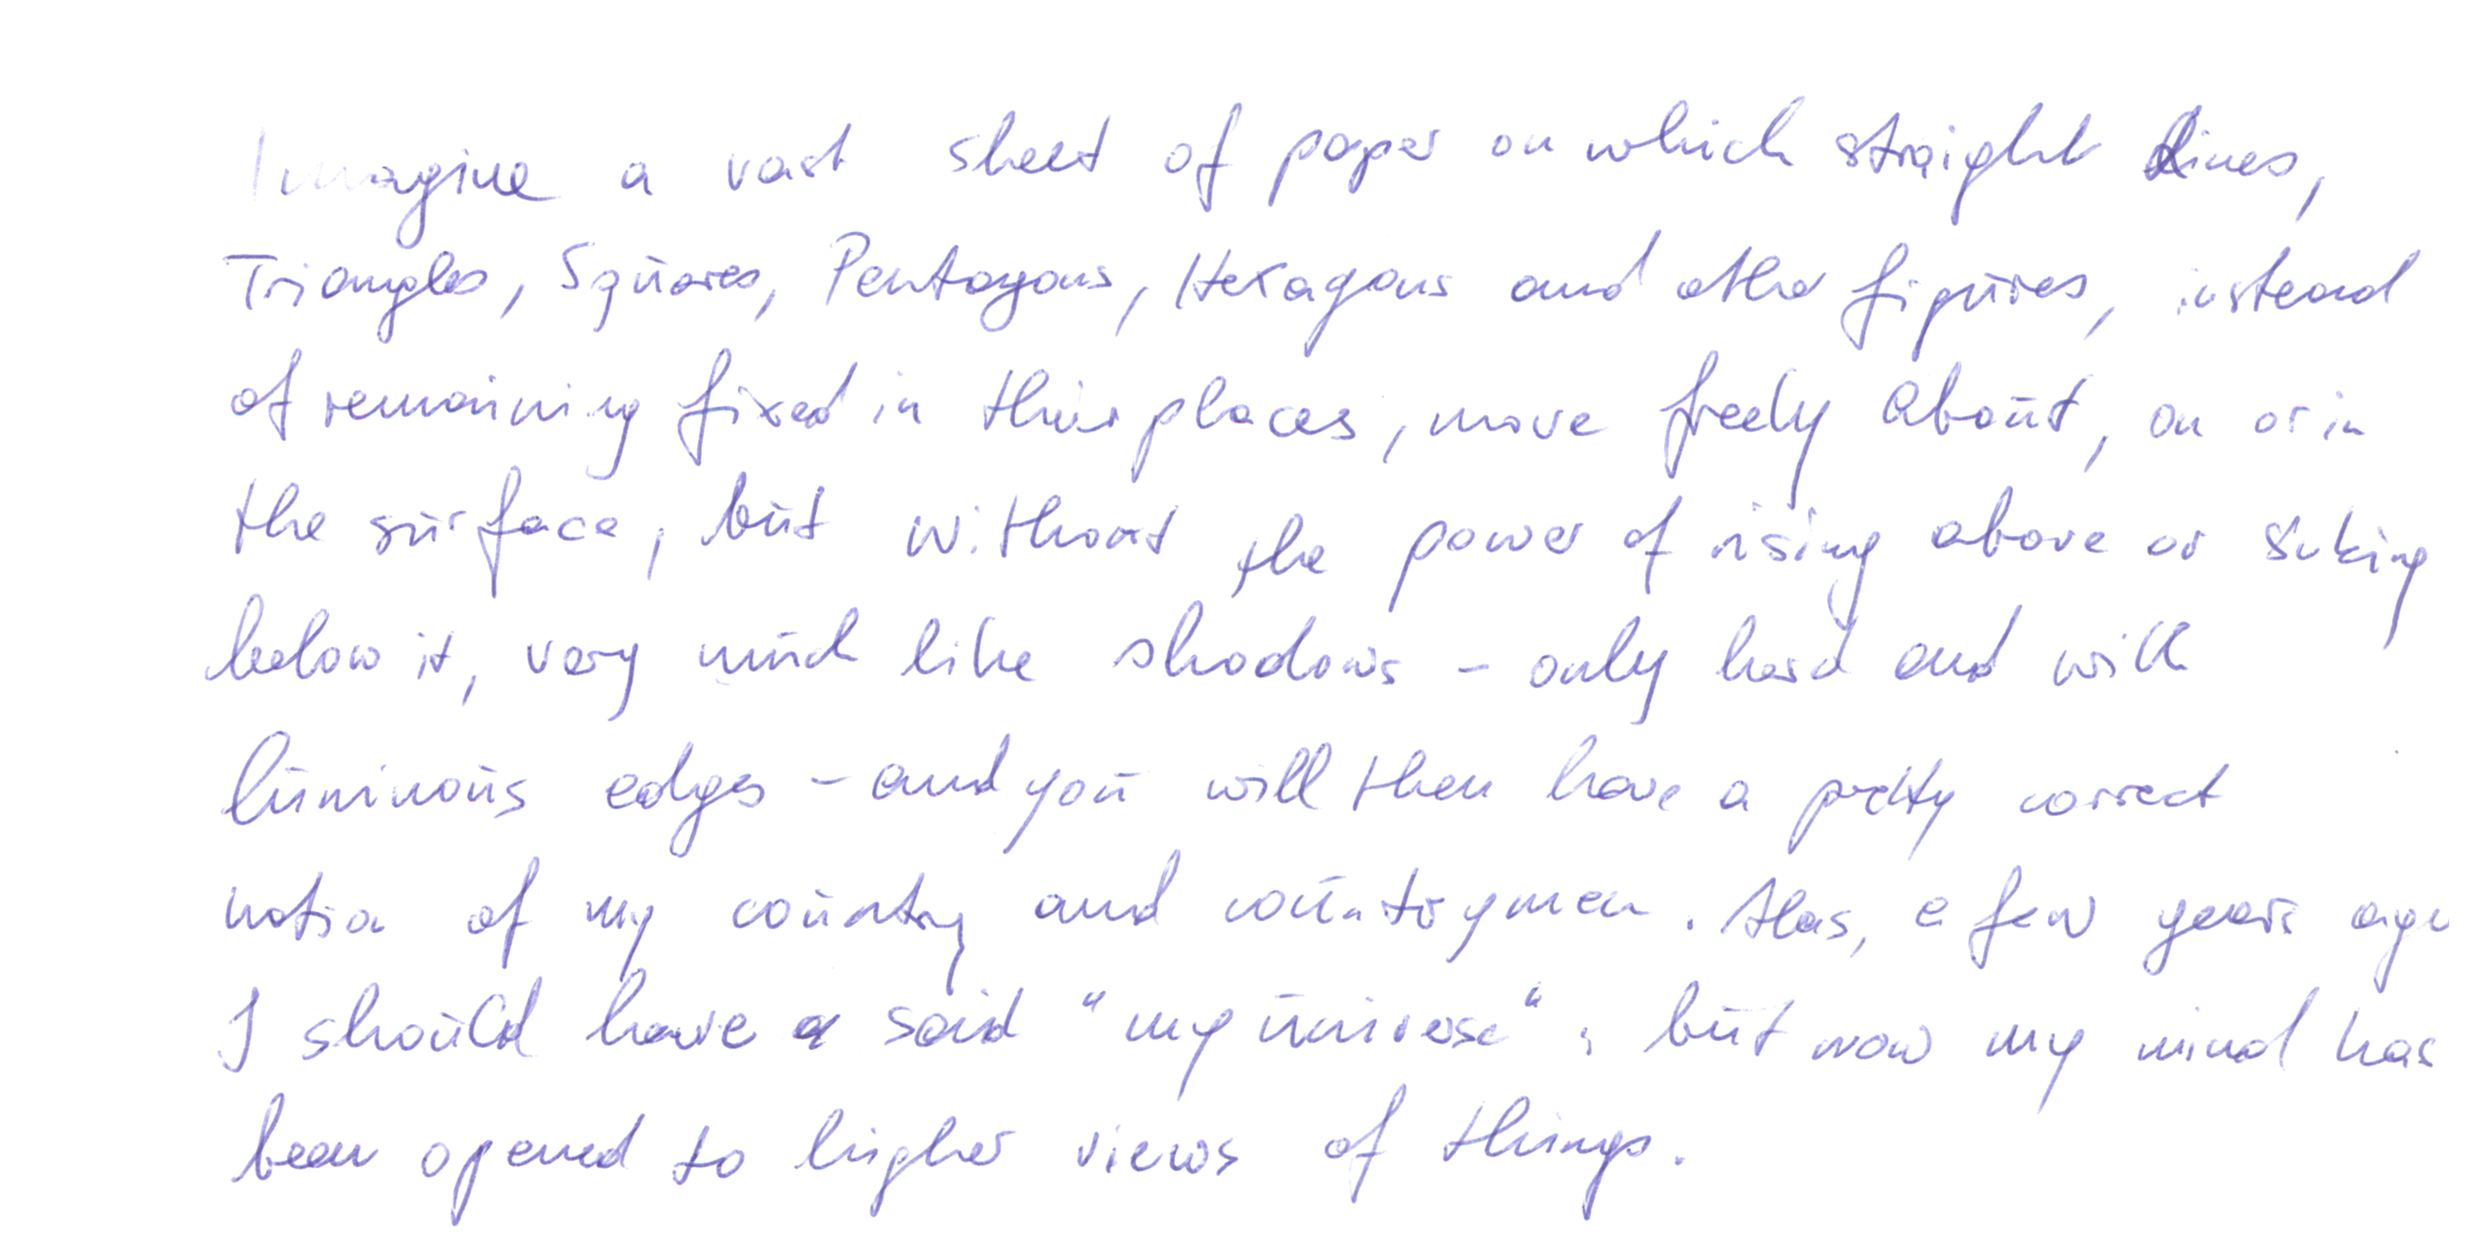 Imagine a vast sheet of paper on which straight lines,
Triangles, Squares, Pentagons, Hexagons and other figures, instead
of remaining fixed in their places, move freely about, on or in
the surface, but without the power of rising above or sinking
below it, very much like shadows - only hard and with
luminous edges - and you will then have a pretty correct
notion of my country and countrymen. Alas, a few years ago
I should have said "my universe", but now my mind has
been opened to higher views of things.